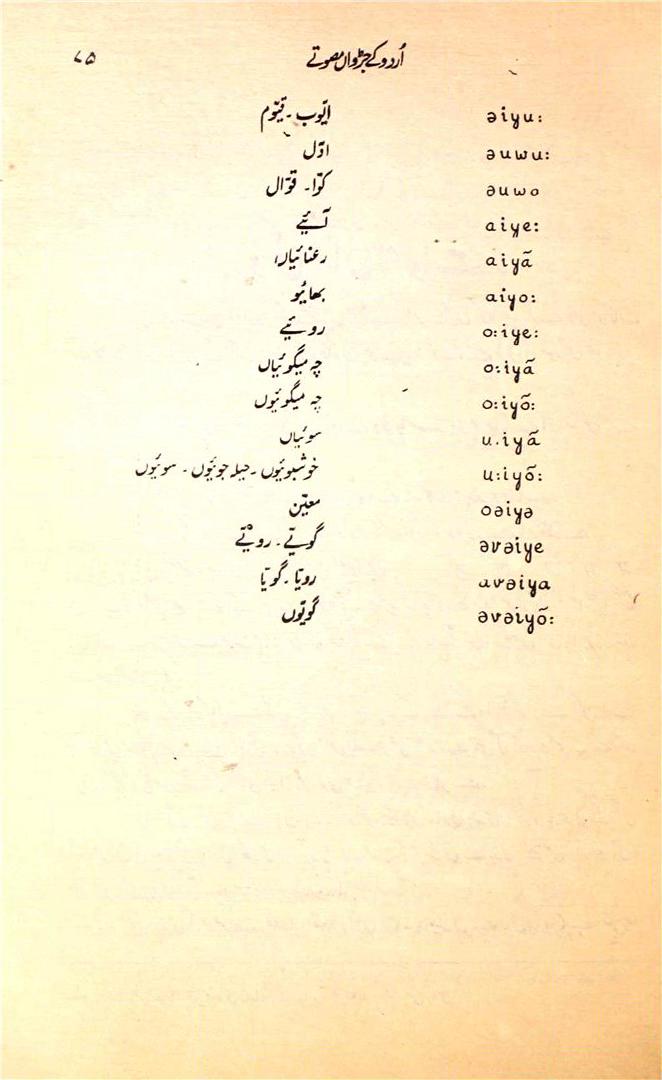 اُردو کے جڑواں مصوتے ۷۵
əiyu: ایّوب ۔ قیّوم
əuwu: اوّل
əuwo کوّا ۔ قوّال
aiye: آئیے
aiyã رعنائیاں
aiyo: بھائیو
o:iye: روئیے
o:iyã چہ میگوئیاں
o:iyõ: چہ میگوئیوں
u.iyã سوئیاں
u:iyõ: خوشبوئیوں ۔ حیلہ جوئیوں ۔ سوئیوں
oəiyə معیّن
əvəiye گویّے ۔ رویّے
avəiya رویّا ۔ گویّا
əvəiyõ: گویّوں